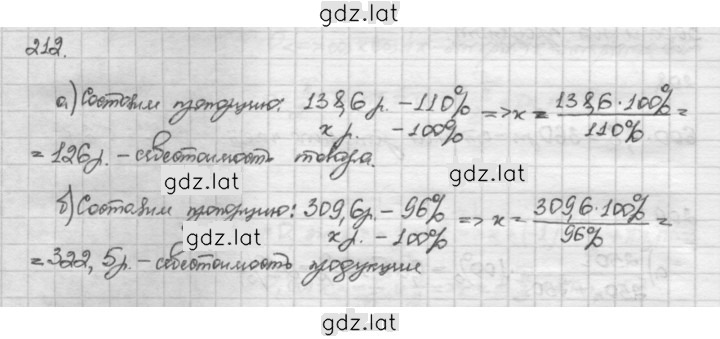 gdz.lat
212.
а) Составим пропорцию: 138,6 р. – 110% => x = 138,6·100% =
x р. – 100% 110%
= 126 р. – себестоимость товара.
gdz.lat gdz.lat
б) Составим пропорцию: 309,6 р. – 96% => x = 309,6·100% =
x р. – 100% 96%
gdz.lat
= 322,5 р. – себестоимость продукции
gdz.lat